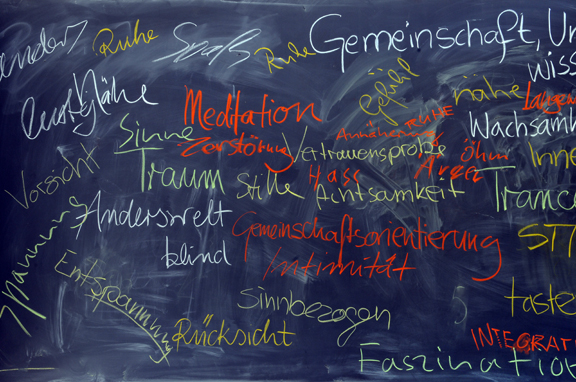 Ruhe
Spaß
Ruhe
Gemeinschaft, Un
wiss
lustig
Nähe
gefühl
nähe
Langew
Meditation
RUHE
Annäherung
Wachsamk
Sinne
Zerstörung
Vertrauensprobe
öhm
Inne
Vorsicht
Traum
Stille
Hass
Achtsamkeit
Ärger
Trance
Spannung
Anderswelt
Gemeinschaftsorientierung
STI
blind
Intimität
Entspannung
sinnbezogen
taste
Rücksicht
INTEGRAT
Faszination